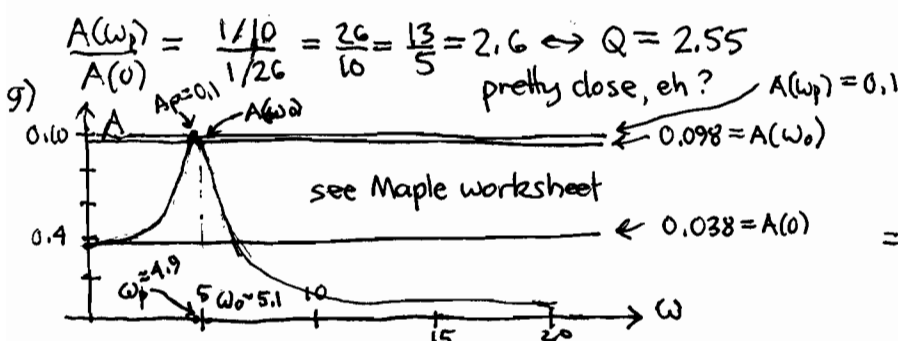 A(ωp)/A(0) = (1/10)/(1/26) = 26/10 = 13/5 = 2.6 ↔ Q = 2.55
pretty close, eh?
g)
Ap=0.1
A(ω0)
A(ωp) = 0.1
0.10
A
0.098 = A(ω0)
see Maple worksheet
0.4
0.038 = A(0)
=
ωp≈4.9
5 ω0~5.1 10
15 20
ω